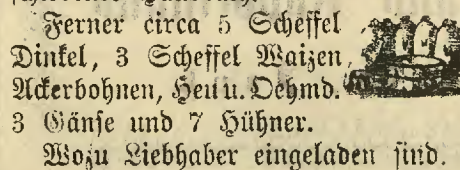 Ferner circa 5 Scheffel
Dinkel, 3 Scheffel Waizen,
Ackerbohnen, Heu u. Oehmd.
3 Gänse und 7 Hühner.
Wozu Liebhaber eingeladen sind.